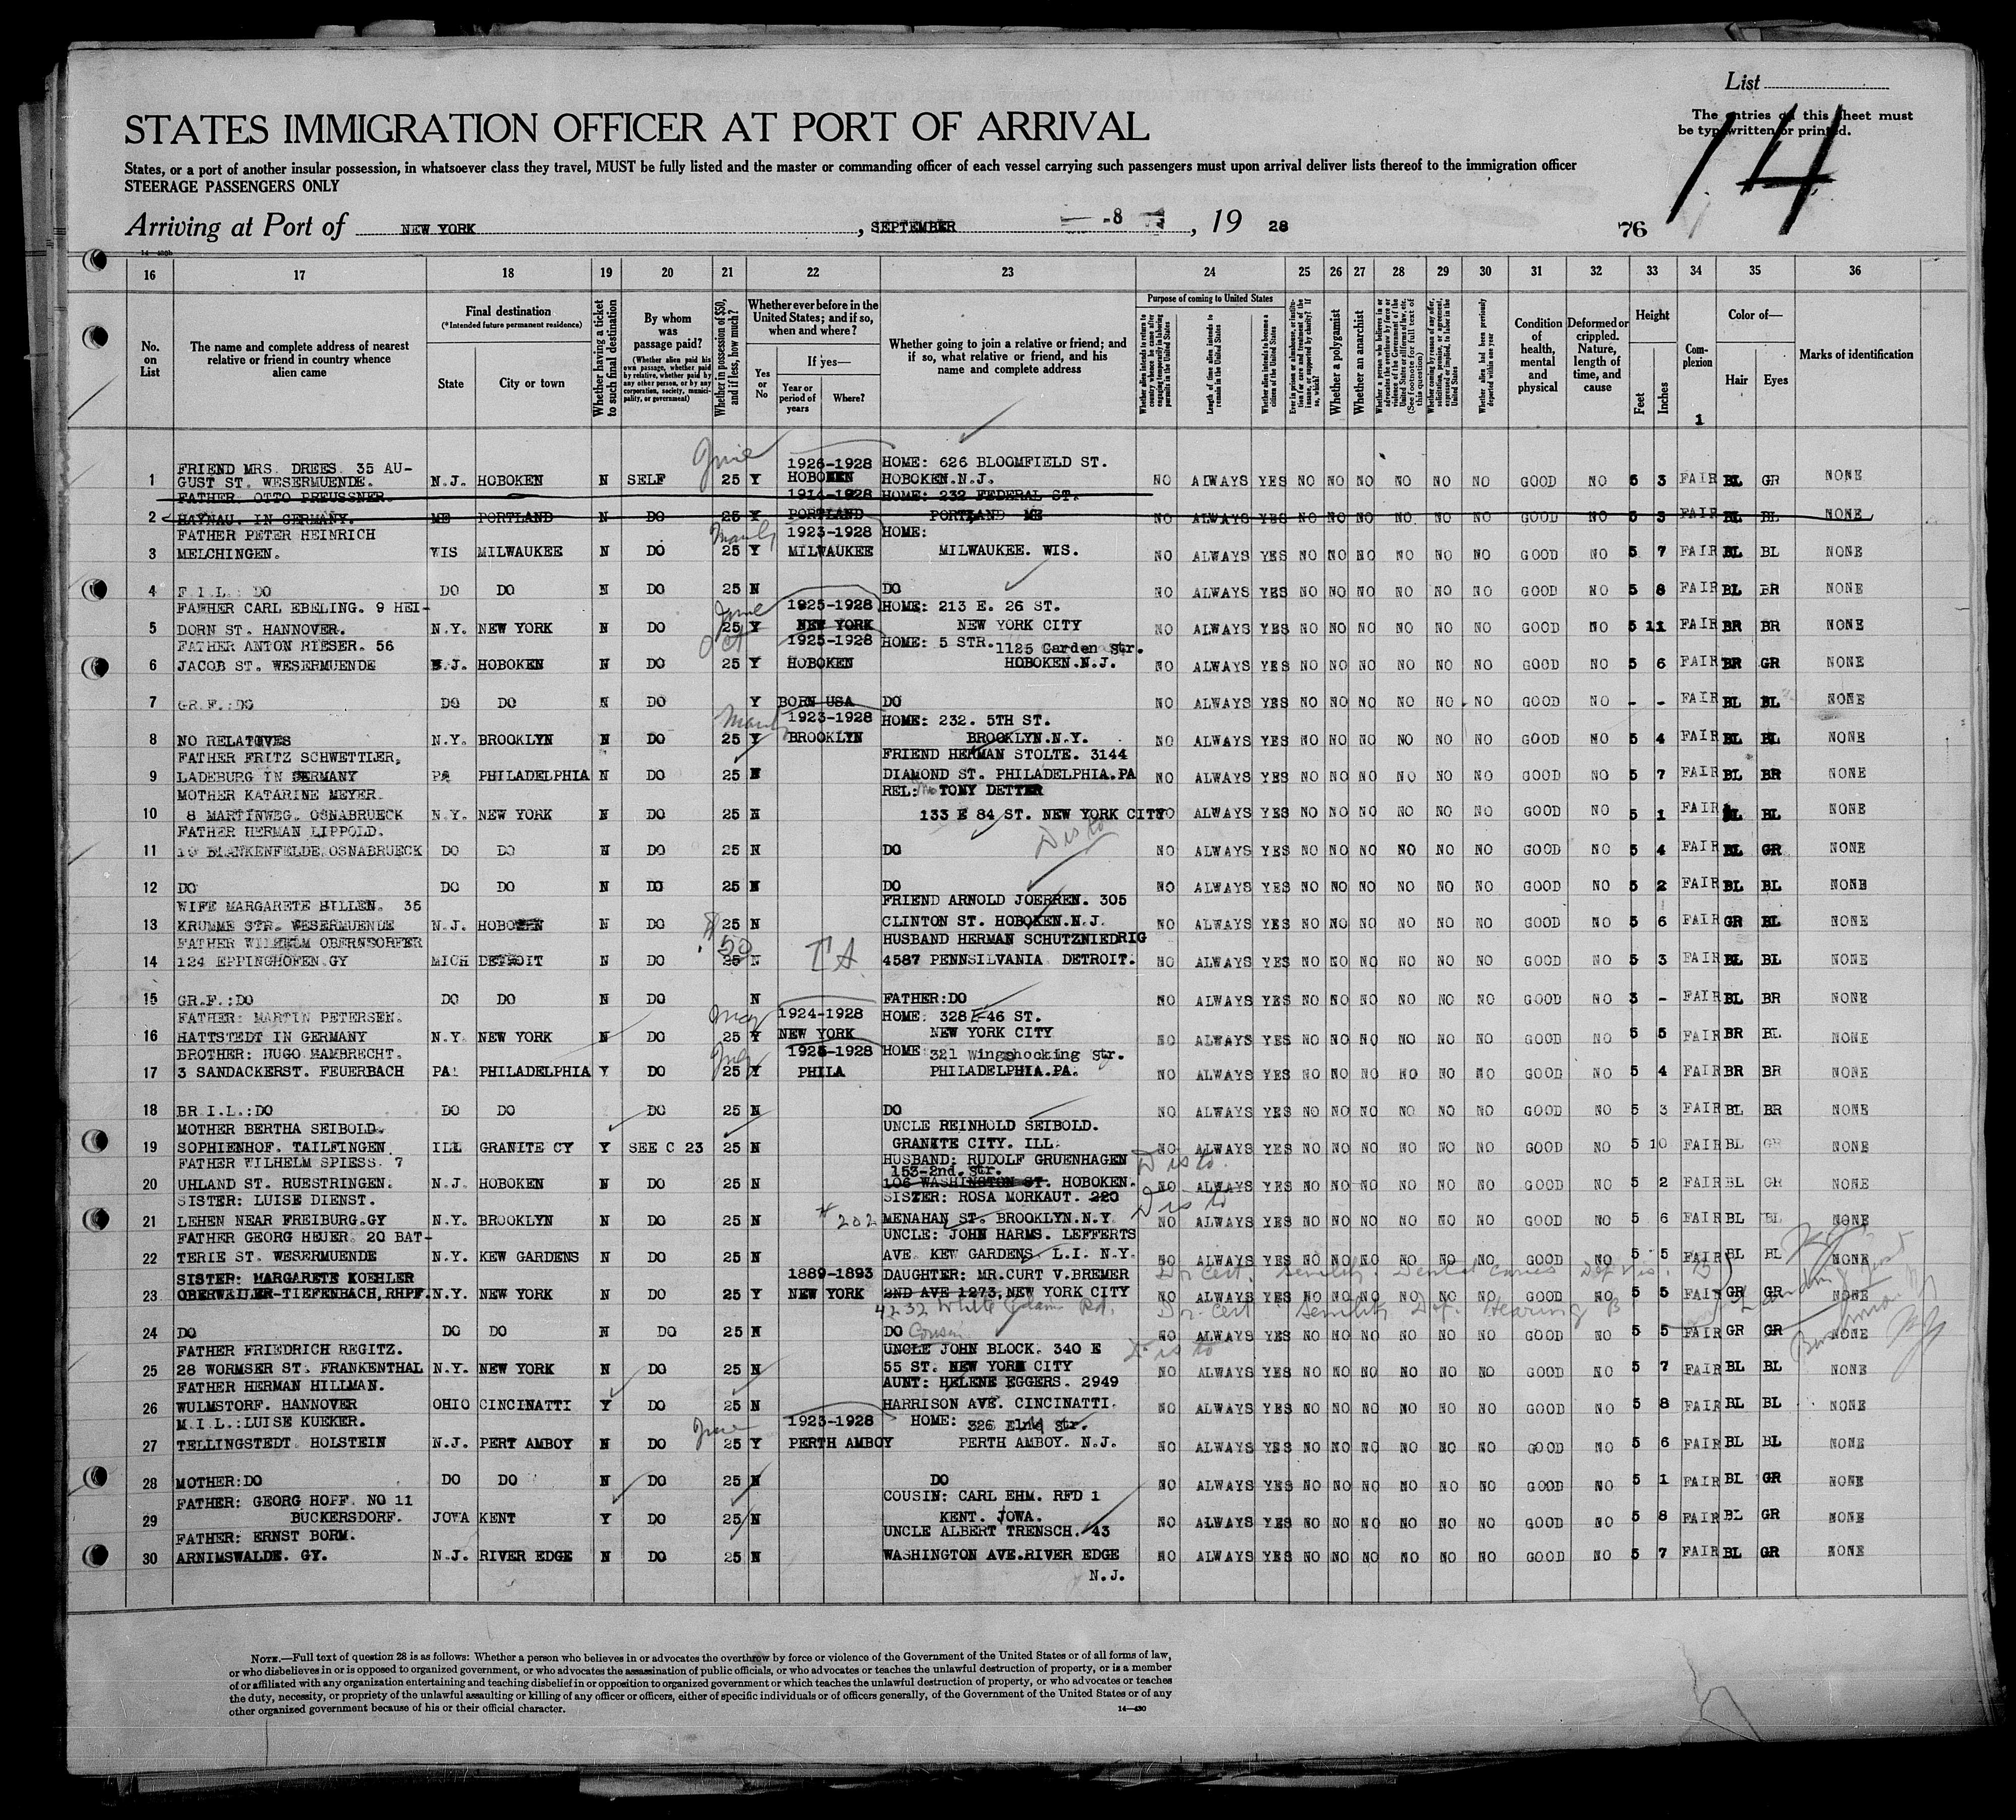 List
The entries on this sheet must
be typewritten or printed.
14
STATES IMMIGRATION OFFICER AT PORT OF ARRIVAL
States, or a port of another insular possession, in whatsoever class they travel, MUST be fully listed and the master or commanding officer of each vessel carrying such passengers must upon arrival deliver lists thereof to the immigration officer
STEERAGE PASSENGERS ONLY
Arriving at Port of NEW YORK, SEPTEMBER -8, 19 28
76
16 17 18 19 20 21 22 23 24 25 26 27 28 29 30 31 32 33 34 35 36
No. on List
The name and complete address of nearest relative or friend in country whence alien came
Final destination
(*Intended future permanent residence)
State
City or town
Whether having a ticket to such final destination
By whom was passage paid?
(Whether alien paid his own passage, whether paid by relative, whether paid by any other person, or by any corporation, society, municipality, or government)
Whether in possession of $50, and if less, how much?
Whether ever before in the United States; and if so, when and where?
Yes or No
If yes—
Year or period of years
Where?
Whether going to join a relative or friend; and if so, what relative or friend, and his name and complete address
Purpose of coming to United States
Length of time alien intends to remain in the United States
Whether alien intends to become a citizen of the United States
Whether a polygamist
Whether an anarchist
Condition of health, mental and physical
Deformed or crippled. Nature, length of time, and cause
Height
Feet
Inches
Complexion
1
Color of—
Hair
Eyes
Marks of identification
June
FRIEND MRS. DREES. 35 AU- 1926-1928 HOME: 626 BLOOMFIELD ST.
1 GUST ST. WESERMUENDE. N.J. HOBOKEN N SELF 25 Y HOBOKEN HOBOKEN.N.J. NO ALWAYS YES NO NO NO NO NO NO GOOD NO 5 3 FAIR BL GR NONE
FATHER. OTTO PREUSSNER. 1914-1928 HOME: 232 FEDERAL ST.
2 HAYNAU. IN GERMANY. ME PORTLAND N DO 25 Y PORTLAND PORTLAND ME NO ALWAYS YES NO NO NO NO NO NO GOOD NO 5 3 FAIR BL BL NONE
FATHER PETER HEINRICH 1923-1928 HOME:
3 MELCHINGEN. WIS MILWAUKEE N DO 25 Y MILWAUKEE MILWAUKEE. WIS. NO ALWAYS YES NO NO NO NO NO NO GOOD NO 5 7 FAIR BL BL NONE
4 F.I.L.: DO DO DO N DO 25 N DO NO ALWAYS YES NO NO NO NO NO NO GOOD NO 5 8 FAIR BL BR NONE
FATHER CARL EBELING. 9 HEI- June 1925-1928 HOME: 213 E. 26 ST.
5 DORN ST. HANNOVER. N.Y. NEW YORK N DO 25 Y NEW YORK NEW YORK CITY NO ALWAYS YES NO NO NO NO NO NO GOOD NO 5 11 FAIR BR BR NONE
FATHER ANTON RIESER. 56 Oct 1925-1928 HOME: 5 STR. 1125 Garden Str.
6 JACOB ST. WESERMUENDE N.J. HOBOKEN N DO 25 Y HOBOKEN HOBOKEN.N.J. NO ALWAYS YES NO NO NO NO NO NO GOOD NO 5 6 FAIR BR GR NONE
7 GR.F.:DO DO DO N DO Y BORN USA DO NO ALWAYS YES NO NO NO NO NO NO GOOD NO - - FAIR BL BL NONE
1923-1928 HOME: 232. 5TH ST.
8 NO RELATOVES N.Y. BROOKLYN N DO 25 Y BROOKLYN BROOKLYN.N.Y. NO ALWAYS YES NO NO NO NO NO NO GOOD NO 5 4 FAIR BL BL NONE
FATHER FRITZ SCHWETTLER, FRIEND HERMAN STOLTE. 3144
9 LADEBURG IN GERMANY PA PHILADELPHIA N DO 25 N DIAMOND ST. PHILADELPHIA.PA NO ALWAYS YES NO NO NO NO NO NO GOOD NO 5 7 FAIR BL BR NONE
MOTHER KATARINE MEYER. REL: TONY DETTER
10 8 MARTINWEG. OSNABRUECK N.Y. NEW YORK N DO 25 N 133 E 84 ST. NEW YORK CITY NO ALWAYS YES NO NO NO NO NO NO GOOD NO 5 1 FAIR BL BL NONE
FATHER HERMAN LIPPOLD. Dis to
11 10 BLANKENFELDE OSNABRUECK DO DO N DO 25 N DO NO ALWAYS YES NO NO NO NO NO NO GOOD NO 5 4 FAIR BL GR NONE
12 DO DO DO N DO 25 N DO NO ALWAYS YES NO NO NO NO NO NO GOOD NO 5 2 FAIR BL BL NONE
WIFE MARGARETE HILLEN. 35 FRIEND ARNOLD JOERREN. 305
13 KRUMME STR. WESERMUENDE N.J. HOBOKEN N DO 25 N CLINTON ST. HOBOKEN.N.J. NO ALWAYS YES NO NO NO NO NO NO GOOD NO 5 6 FAIR GR BL NONE
FATHER WILHELM OBERNDORFER $50 HUSBAND HERMAN SCHUTZNIEDRIG
14 124 EPPINGHOFEN.GY MICH DETROIT N DO 25 N 4587 PENNSILVANIA DETROIT. NO ALWAYS YES NO NO NO NO NO NO GOOD NO 5 3 FAIR BL BL NONE
15 GR.F.:DO DO DO N DO N FATHER:DO NO ALWAYS YES NO NO NO NO NO NO GOOD NO 3 - FAIR BL BR NONE
FATHER: MARTIN PETERSEN. May 1924-1928 HOME: 328 E 46 ST.
16 HATTSTEDT IN GERMANY N.Y. NEW YORK N DO 25 Y NEW YORK NEW YORK CITY NO ALWAYS YES NO NO NO NO NO NO GOOD NO 5 5 FAIR BR BL NONE
BROTHER: HUGO MAMBRECHT. July 1925-1928 HOME: 321 Wingohocking Str.
17 3 SANDACKERST. FEUERBACH PA. PHILADELPHIA Y DO 25 Y PHILA PHILADELPHIA.PA. NO ALWAYS YES NO NO NO NO NO NO GOOD NO 5 4 FAIR BR BR NONE
18 BR I.L.:DO DO DO DO 25 N DO NO ALWAYS YES NO NO NO NO NO NO GOOD NO 5 3 FAIR BL BR NONE
MOTHER BERTHA SEIBOLD. UNCLE REINHOLD SEIBOLD.
19 SOPHIENHOF. TAILFINGEN ILL GRANITE CY Y SEE C 23 25 N GRANITE CITY. ILL. NO ALWAYS YES NO NO NO NO NO NO GOOD NO 5 10 FAIR BL GR NONE
FATHER WILHELM SPIESS. 7 HUSBAND: RUDOLF GRUENHAGEN Dis to
153-2nd. Str.
20 UHLAND ST. RUESTRINGEN. N.J. HOBOKEN N DO 25 N 106 WASHINGTON ST. HOBOKEN. NO ALWAYS YES NO NO NO NO NO NO GOOD NO 5 2 FAIR BL GR NONE
SISTER: LUISE DIENST. SISTER: ROSA MORKAUT. 220 Dis to
21 LEHEN NEAR FREIBURG.GY N.Y. BROOKLYN N DO 25 N 202 MENAHAN ST. BROOKLYN.N.Y NO ALWAYS YES NO NO NO NO NO NO GOOD NO 5 6 FAIR BL BL NONE
FATHER GEORG HEUER. 20 BAT- UNCLE: JOHN HARMS. LEFFERTS
22 TERIE ST. WESERMUENDE N.Y. KEW GARDENS N DO 25 N AVE. KEW GARDENS. L.I. N.Y. NO ALWAYS YES NO NO NO NO NO NO GOOD NO 5 5 FAIR BL BL NONE
SISTER: MARGARETE KOEHLER 1889-1893 DAUGHTER: MR.CURT V.BREMER Dr. Cert. Senility. Dental caries Def vis. B
23 OBERWEILER-TIEFENBACH,RHPF. N.Y. NEW YORK N DO 25 Y NEW YORK 2ND AVE 1273, NEW YORK CITY NO ALWAYS YES NO NO NO NO NO NO GOOD NO 5 5 FAIR GR GR NONE
4232 White Plains Rd. Dr. Cert Senility Def. Hearing B
24 DO DO DO N DO 25 N DO Cousin NO ALWAYS YES NO NO NO NO NO NO GOOD NO 5 5 FAIR GR GR NONE
FATHER FRIEDRICH REGITZ. UNCLE JOHN BLOCK. 340 E Dis to
25 28 WORMSER ST. FRANKENTHAL N.Y. NEW YORK N DO 25 N 55 ST. NEW YORK CITY NO ALWAYS YES NO NO NO NO NO NO GOOD NO 5 7 FAIR BL BL NONE
FATHER HERMAN HILLMAN. AUNT: HELENE EGGERS. 2949
26 WULMSTORF. HANNOVER OHIO CINCINATTI Y DO 25 N HARRISON AVE. CINCINATTI. NO ALWAYS YES NO NO NO NO NO NO GOOD NO 5 8 FAIR BL BL NONE
M.I.L.:LUISE KUEKER. June 1923-1928 HOME: 326 Elm Str.
27 TELLINGSTEDT HOLSTEIN N.J. PERT AMBOY N DO 25 Y PERTH AMBOY PERTH AMBOY. N.J. NO ALWAYS YES NO NO NO NO NO NO GOOD NO 5 6 FAIR BL BL NONE
28 MOTHER:DO DO DO N DO 25 N DO NO ALWAYS YES NO NO NO NO NO NO GOOD NO 5 1 FAIR BL GR NONE
FATHER: GEORG HOPF. NO 11 COUSIN: CARL EHM. RFD 1
29 BUCKERSDORF. JOWA KENT Y DO 25 N KENT. JOWA. NO ALWAYS YES NO NO NO NO NO NO GOOD NO 5 8 FAIR BL GR NONE
FATHER: ERNST BORM. UNCLE ALBERT TRENSCH. 43
30 ARNIMSWALDE. GY. N.J. RIVER EDGE N DO 25 N WASHINGTON AVE.RIVER EDGE NO ALWAYS YES NO NO NO NO NO NO GOOD NO 5 7 FAIR BL GR NONE
N.J.
NOTE.—Full text of question 28 is as follows: Whether a person who believes in or advocates the overthrow by force or violence of the Government of the United States or of all forms of law,
or who disbelieves in or is opposed to organized government, or who advocates the assassination of public officials, or who advocates or teaches the unlawful destruction of property, or is a member
of or affiliated with any organization entertaining and teaching disbelief in or opposition to organized government or which teaches the unlawful destruction of property, or who advocates or teaches
the duty, necessity, or propriety of the unlawful assaulting or killing of any officer or officers, either of specific individuals or of officers generally, of the Government of the United States or of any
other organized government because of his or their official character.
14—430